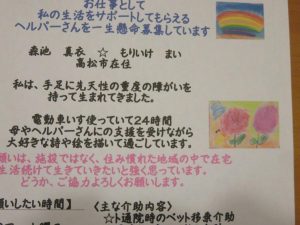 お仕事として
私の生活をサポートしてもらえる
ヘルパーさんを一生懸命募集しています
森池 真衣 ☆ もりいけ まい
高松市在住
私は、手足に先天性の重度の障がいを
持って生まれてきました。
電動車いす使っていて24時間
母やヘルパーさんにの支援を受けながら
大好きな詩や絵を描いて過ごしています。
願いは、施設ではなく、住み慣れた地域の中で在宅
生活続けて生きていきたいと強く思っています。
どうか、ご協力よろしくお願いします。
願いしたい時間】 〈主な介助内容〉
☆ト通院時のベット移乗介助